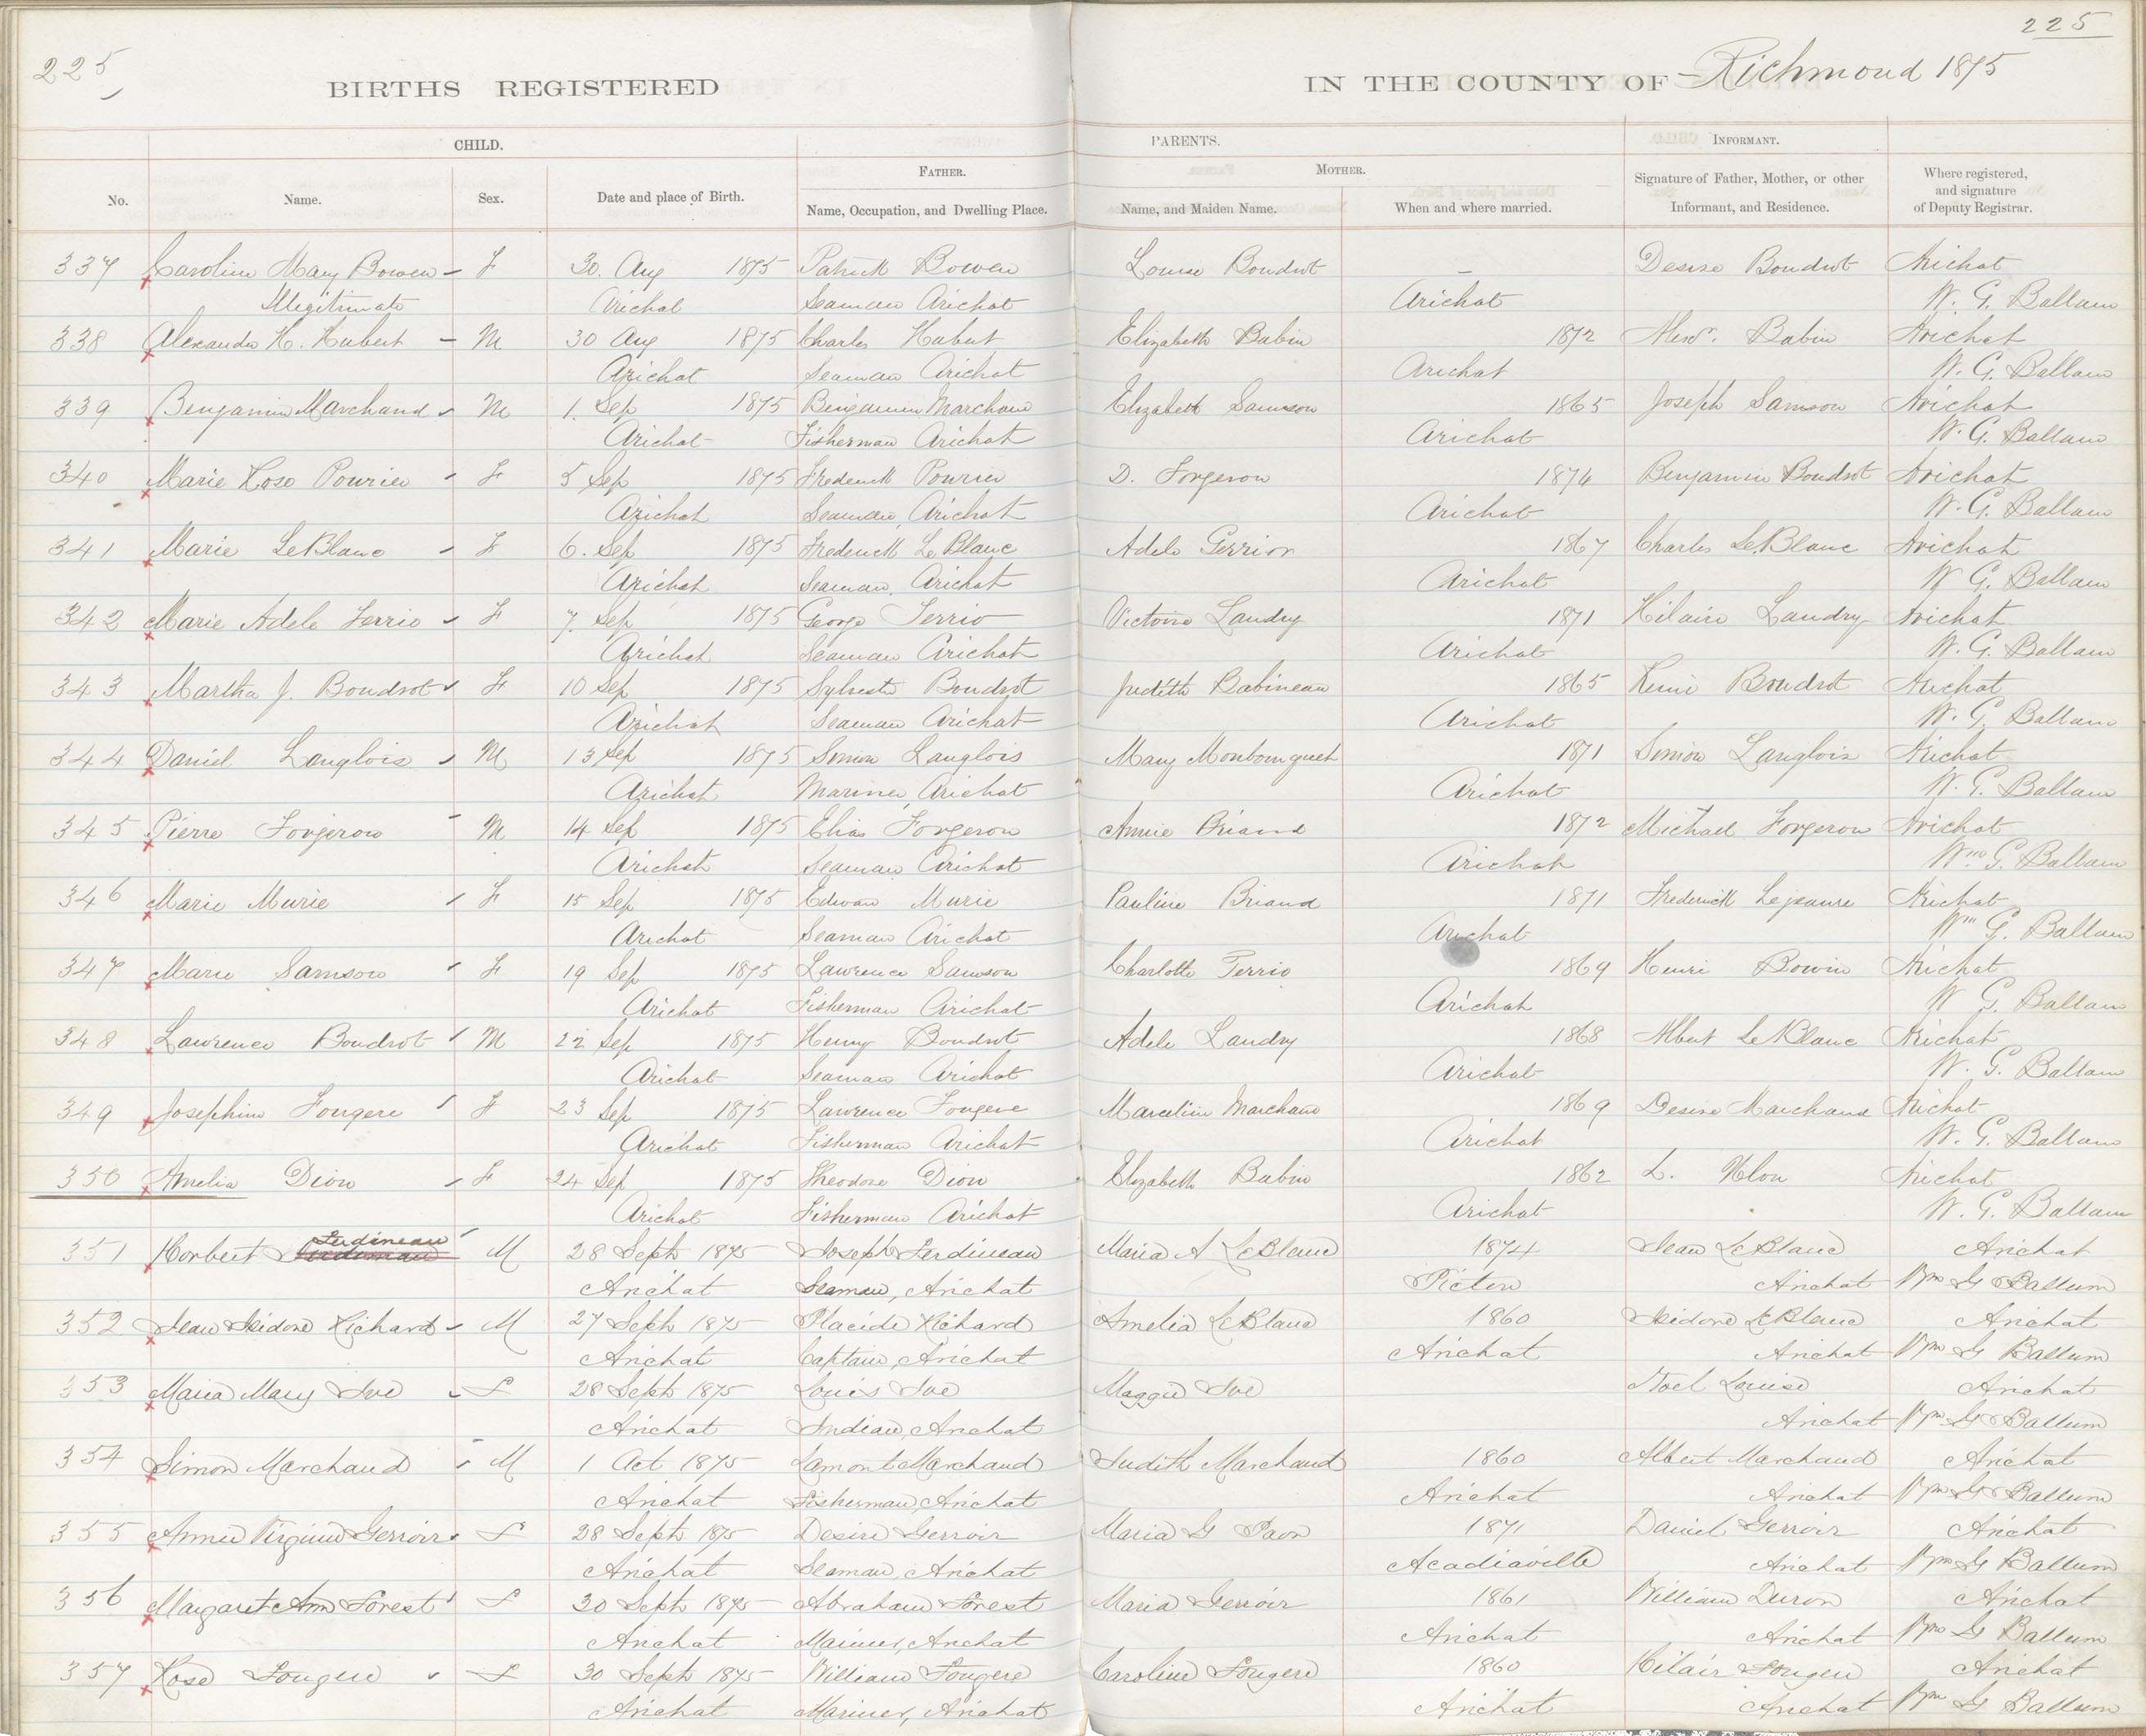 225
225
BIRTHS REGISTERED IN THE COUNTY OF Richmond 1875
CHILD. PARENTS. INFORMANT.
FATHER. MOTHER.
No. Name. Sex. Date and place of Birth. Name, Occupation, and Dwelling Place. Name, and Maiden Name. When and where married. Signature of Father, Mother, or other Informant, and Residence. Where registered, and signature of Deputy Registrar.
337 Caroline Mary Bowen - F 30. Aug 1875 Patrick Bowen Louise Boudrot - Desire Boudrot Arichat
Illegitimate Arichat Seaman Arichat Arichat W. G. Ballam
338 Alexander H. Hubert - M 30 Aug 1875 Charles Hubert Elizabeth Babin 1872 Alexr. Babin Arichat
Arichat Seaman Arichat Arichat W. G. Ballam
339 Benjamin Marchand M 1. Sep 1875 Benjamin Marchand Elizabeth Samson 1865 Joseph Samson Arichat
Arichat Fisherman Arichat Arichat W. G. Ballam
340 Marie Rose Pourier - F 5 Sep 1875 Frederick Pourier D. Forgeron 1874 Benjamin Boudrot Arichat
Arichat Seaman, Arichat Arichat W. G. Ballam
341 Marie LeBlanc - F 6. Sep 1875 Frederick LeBlanc Adele Gerrior 1867 Charles LeBlanc Arichat
Arichat Seaman, Arichat Arichat W G. Ballam
342 Marie Adele Terrio - F 7. Sep 1875 George Terrio Victoire Landry 1871 Hilaire Landry Arichat
Arichat Seaman Arichat Arichat W. G. Ballam
343 Martha J. Boudrot F 10 Sep 1875 Sylvester Boudrot Judith Babineau 1865 Remi Boudrot Arichat
Arichat Seaman Arichat Arichat W. G. Ballam
344 Daniel Langlois - M 13 Sep 1875 Simon Langlois Mary Monbourquet 1871 Simon Langlois Arichat
Arichat Mariner, Arichat Arichat W. G. Ballam
345 Pierre Forgeron - M 14 Sep 1875 Elias Forgeron Annie Briand 1872 Michael Forgeron Arichat
Arichat Seaman Arichat Arichat Wm G. Ballam
346 Marie Murie - F 15 Sep 1875 Edward Murie Pauline Briand 1871 Frederick Lejeaune Arichat
Arichat Seaman Arichat Arichat Wm G. Ballam
347 Marie Samson - F 19 Sep 1875 Lawrence Samson Charlotte Terrio 1869 Henri Bowin Arichat
Arichat Fisherman Arichat Arichat W G. Ballam
348 Lawrence Boudrot M 22 Sep 1875 Henry Boudrot Adele Landry 1868 Albert LeBlanc Arichat
Arichat Seaman Arichat Arichat W. G. Ballam
349 Josephine Fougere F 23 Sep 1875 Lawrence Fougere Marceline Marchand 1869 Desire Marchand Arichat
Arichat Fisherman Arichat Arichat W. G. Ballam
350 Amelia Dion - F 24 Sep 1875 Theodore Dion Elizabeth Babin 1862 L. Arichat
Arichat Fisherman Arichat Arichat W. G. Ballam
Ferdineau
351 Horbert M 28 Sept 1875 Joseph Ferdineau Maria A LeBlanc 1874 Jean LeBlanc Arichat
Arichat Seaman, Arichat Pictou Arichat Wm G Ballum
352 Jean Isidore Richard - M 27 Sept 1875 Placide Richard Amelia LeBlanc 1860 Isidore LeBlanc Arichat
Arichat Captain, Arichat Arichat Arichat Wm G Ballum
353 Maria Mary Joe - F 28 Sept 1875 Louis Joe Maggie Joe Noel Louise Arichat
Arichat Indian, Arichat Arichat Wm G Ballum
354 Simon Marchand - M 1 Oct 1875 Lamont Marchand Judith Marchand 1860 Albert Marchand Arichat
Arichat Fisherman, Arichat Arichat Arichat Wm G Ballum
355 Annie Virginie Gerroir F 28 Sept 1875 Desire Gerroir Maria G Paon 1871 Daniel Gerroir Arichat
Arichat Seaman, Arichat Acadiaville Arichat Wm G Ballum
356 Margaret Ann Forest F 30 Sept 1875 Abraham Forest Maria Gerroir 1861 William Duron Arichat
Arichat Mariner, Arichat Arichat Arichat Wm G Ballum
357 Rose Fougere F 30 Sept 1875 William Fougere Caroline Fougere 1860 Hilair Fougere Arichat
Arichat Mariner, Arichat Arichat Arichat Wm G Ballum